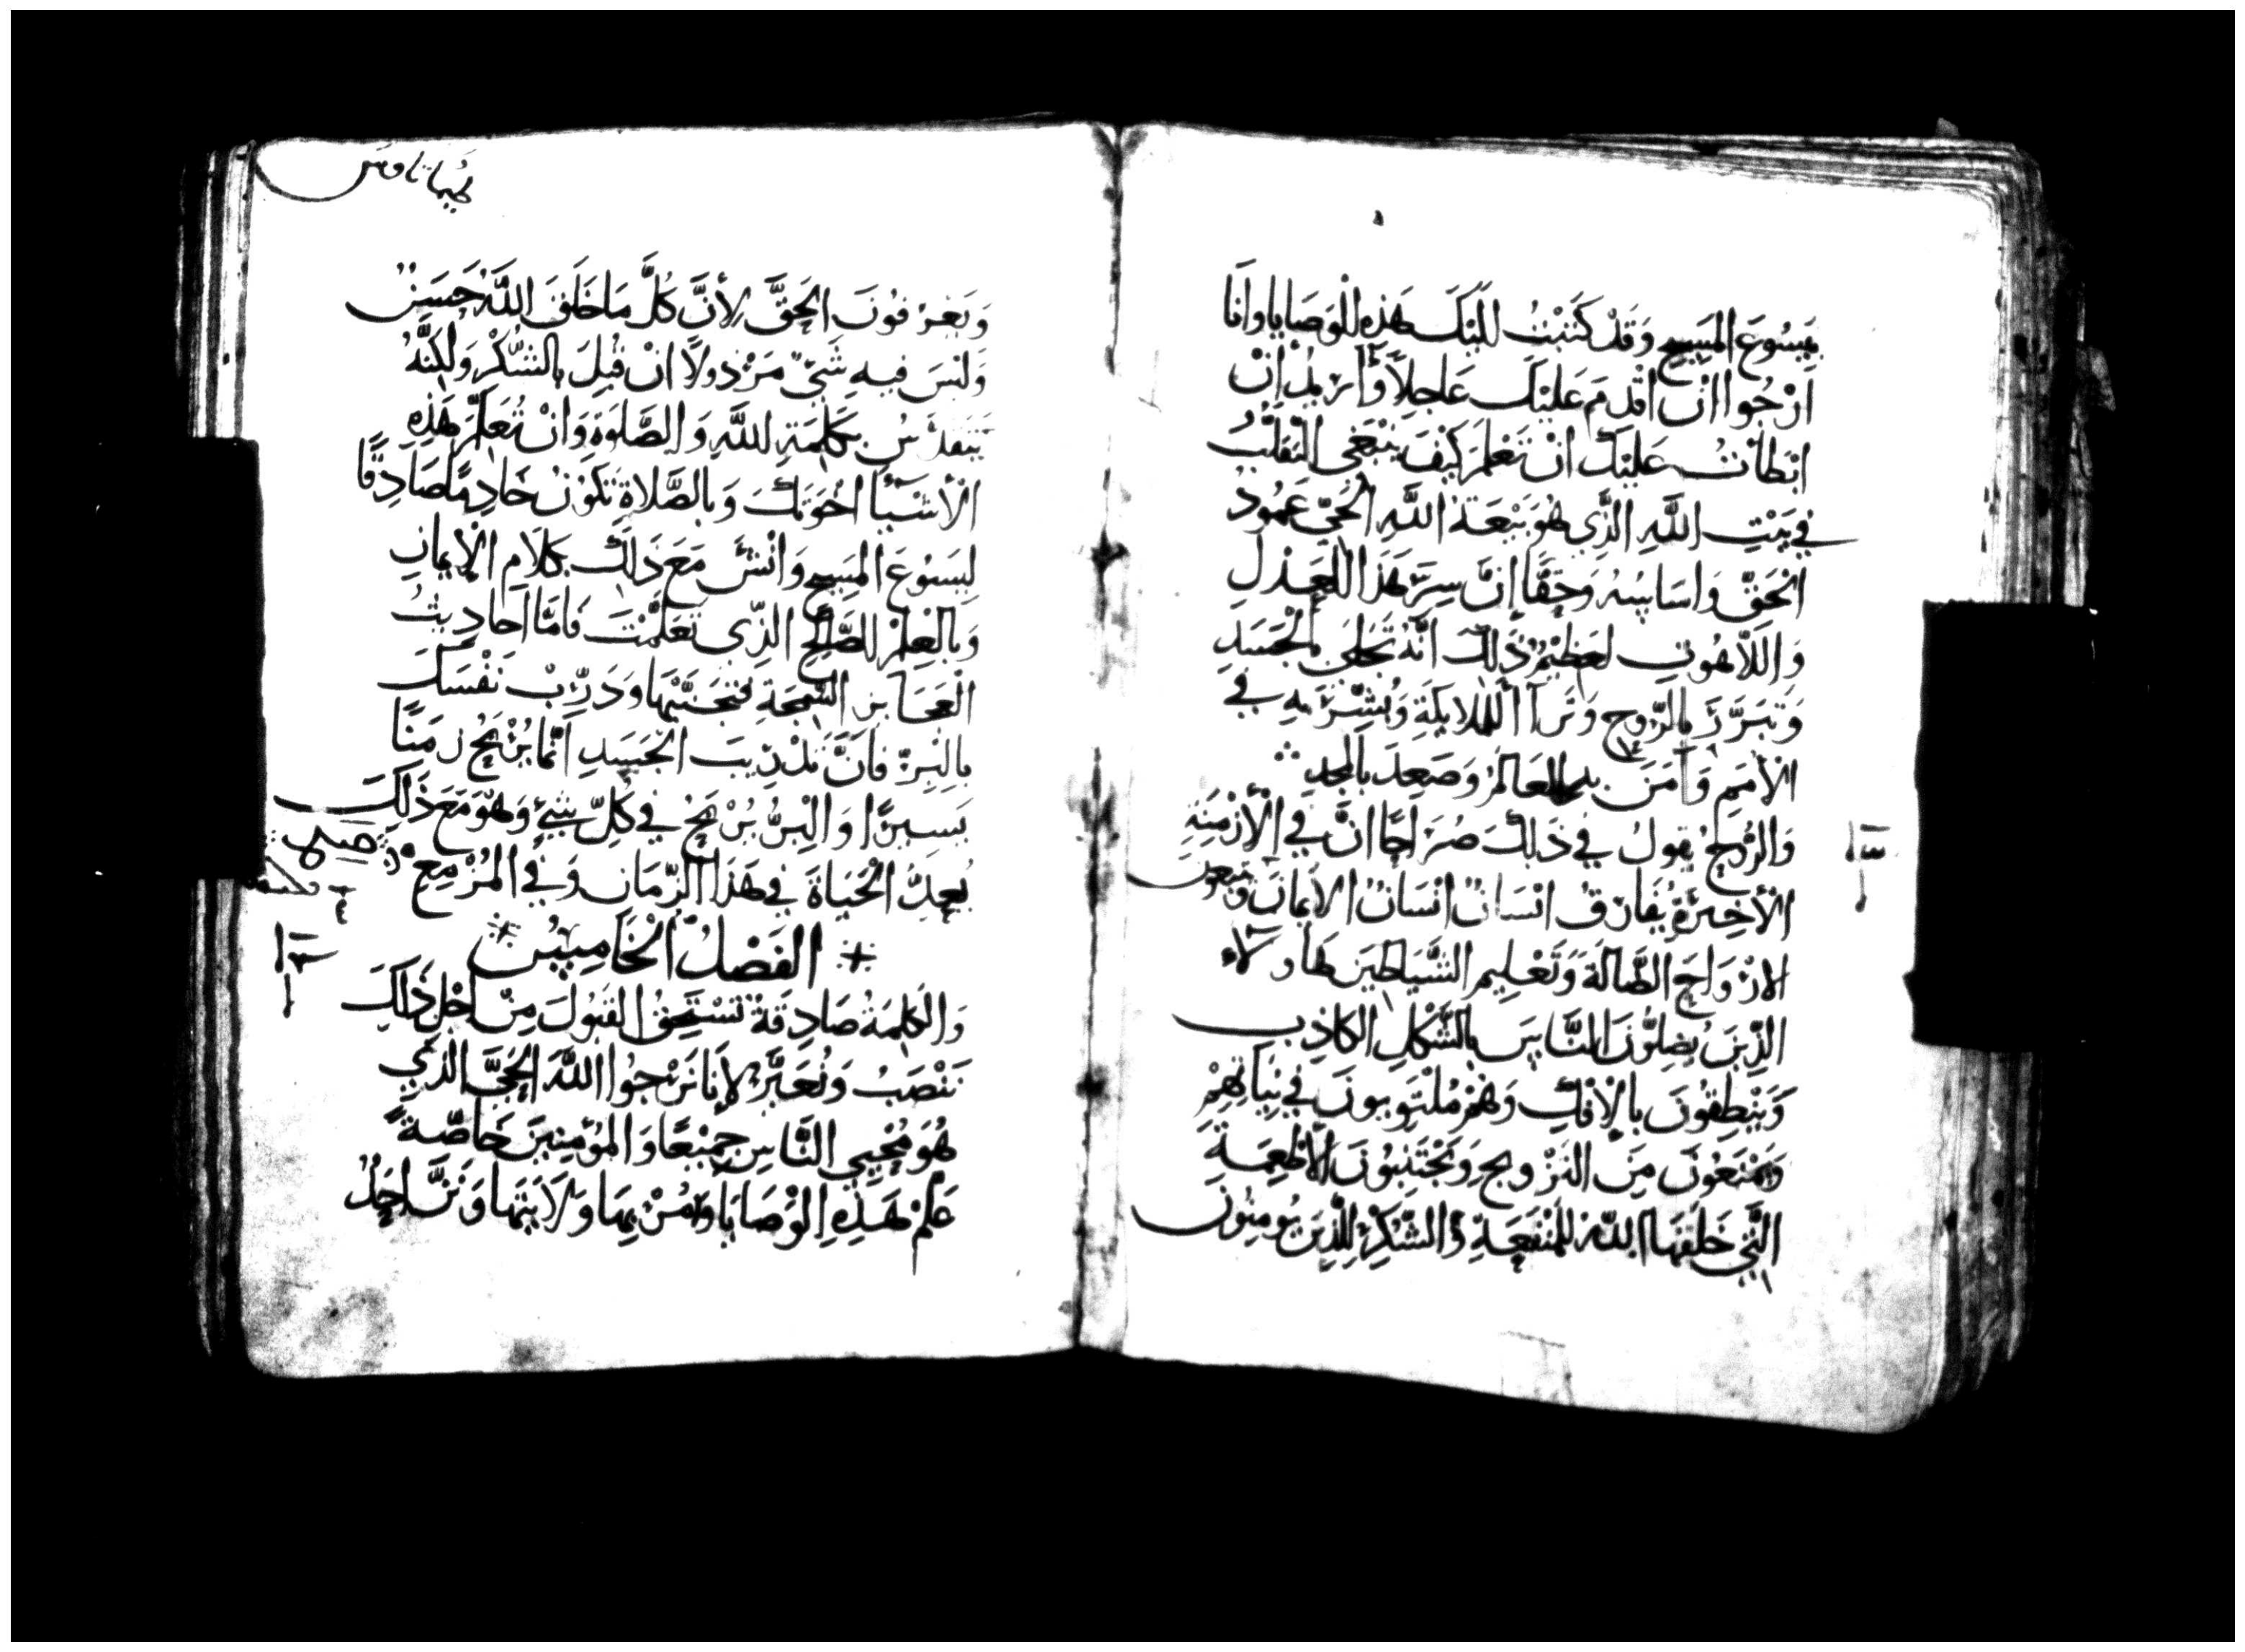 بيسُوعَ المَسِيحِ وَقَدْ كَتَبْتُ اِلَيْكَ هَذِهِ الْوَصَايَا وَانَا
اَرْجُوا اَنْ اَقْدِمَ عَلَيْكَ عَاجِلاً وَأُرِيدُ اِنْ
ابْطَأتُ عَلَيْكَ انْ تَعْلَمَ كَيْفَ يَنْبَغِى التَقَلُّبُ
فِي بَيْتِ اللَّهِ الذِّي هُوَ بَيْعَةُ اللَّهِ الْحَيِّ عَمُودُ
الْحَقِّ وَاسَاسُهُ وَحَقًّا إنَّ سِرَّ هَذَا العَدْلِ
وَاللَّاهُوتِ لَعَظِيمٌ ذَلِكَ انَّهُ تَجَلَى بِالْجَسَدِ
وَتَبَرَّرَ بِالرُّوحِ وَتَرَاآ للملايِكَةِ وَبُشِّرَ بِهِ فِي
الأُمَمِ وَآمَنَ بِهِ العَالَمُ وَصَعِدَ بِالمجدِ
وَالرُّوحُ يَقولُ فِي ذَلِكَ صُرَاحًا انَّ فِي الأَزْمِنَةِ
الْأَخِيرَةِ يُفَارِقُ انْسَانٌ انْسَانٌ الإيمَانَ وَيتبعون
الارْوَاحَ الضَّالَةَ وَتَعْلِيمِ الشَّيَاطِينَ هَاولاء
الذِّينَ يُضِلُّونَ النَّاسَ بِالشَّكْلِ الكَاذِبِ
وَيَنْطِقُونَ بِالإِفْكِ وَهُمْ مُلْتَوِيُونَ فِي نِيَّاتِهِمْ
وَيَمْنَعُونَ مِنَ التَزْوِيجِ وَيَجْتَنِبُونَ الأَطْعِمَةَ
الَّتِي خَلَقَهَا اللهُ لِلْمَنْفَعَةِ وَالشُّكْرِ لِلَّذِينَ يُومِنُونَ
طيماتاوس
وَيَعْرِفُونَ الْحَقَّ لِأَنَّ كُلَّ مَا خَلَقَ اللَّهُ حَسَنٌ
وَلَيْسَ فِيهِ شَيْءٌ مَرْذُولاً انْ قُبِلَ بِالشُّكْرِ وَلَكِنَّهُ
يَتَقَدَّسُ بِكَلِمَةِ اللَّهِ وَالصَّلَوةِ وَانْ تُعَلِّمَ هَذِهِ
الْأَشْيَآء اخْوَتَكَ وَبِالصَّلاةِ تَكُونُ خَادِمًا صَادِقًا
لِيَسُوعَ المَسِيحِ وَانْشَ مَعَ ذَلِكَ بِكَلاَمِ الْإِيمَانِ
وَبِالْعِلْمِ الصَّالِحِ الذِّى تَعَلَّمْتَ فَامَّا احَادِيثُ
الْعَجَايزِ السَّمِجَةِ فَتَجَنَّبْهَا وَدَرِّبْ نَفْسَكَ
بِالْبِرِّ فَانَّ تَدْرِيبَ الْجَسَدِ انَّمَا يُرْبِحُ زَمَنًا
يَسِيرًا وَالْبِرُّ يُرْبِحُ فِي كُلِّ شَيْءٍ وَهُوَ مَعَ ذَلِكَ
يُعِدُّ الْحَيَاةَ فِي هَذَا الزَّمَانِ وَفِي المُزْمِعِ
الفَصْلُ الْخَامِسُ
وَالكَلِمَةُ صَادِقَةٌ تَسْتَحِقُّ القَبُولَ مِنْ اَجْلِ ذَلِكَ
نَنْصَبُ وَنُعَيَّرُ لِأَنَا نَرْجُوا اللَّهَ الْحَيَّ الذِّي
هُوَ مُحْيِي النَّاسِ جَمِيعًا وَالمُؤْمِنِينَ خَاصَّةً
عَلِّمْ هَذِهِ الْوَصَايَا وَامُرْ بِهَا وَلَايَتَهَاوَنَنَّ احَدٌ